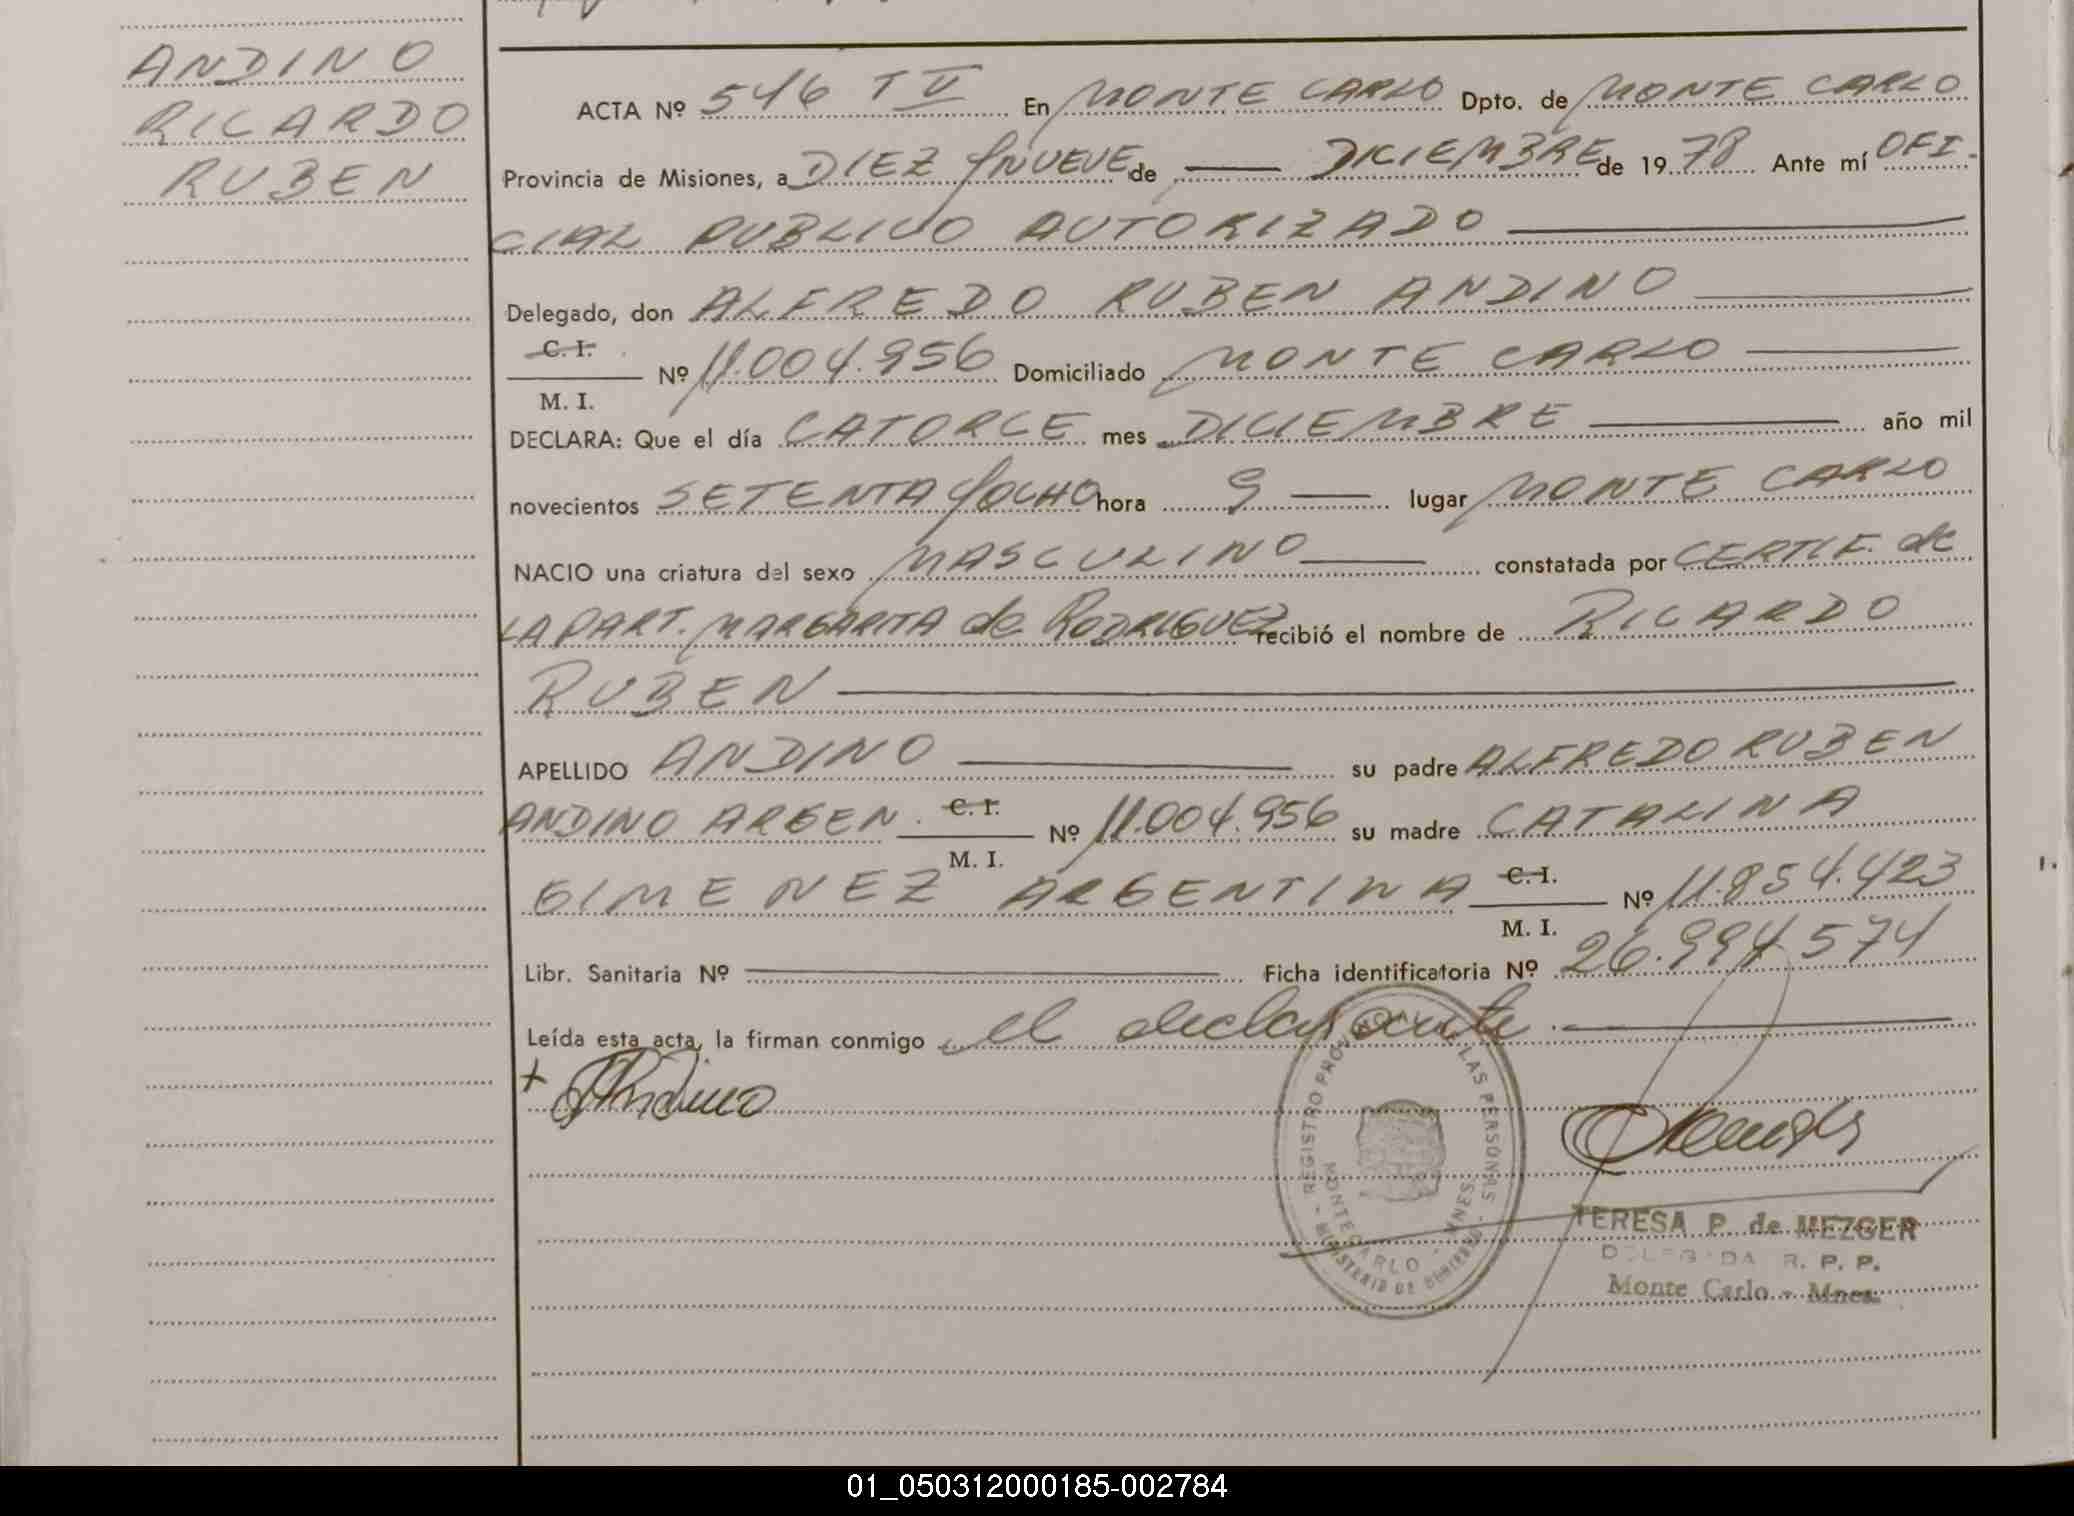 ANDINO
RICARDO
RUBEN
ACTA Nº 546 T II En MONTE CARLO Dpto. de MONTE CARLO
Provincia de Misiones, a DIEZ Y NUEVE de DICIEMBRE de 1978 Ante mí OFI-
CIAL PUBLICO AUTORIZADO
Delegado, don ALFREDO RUBEN ANDINO
C. I.
M. I.
Nº 11.004.956 Domiciliado MONTE CARLO
DECLARA: Que el día CATORCE mes DICIEMBRE año mil
novecientos SETENTA Y OCHO hora 9 lugar MONTE CARLO
NACIO una criatura del sexo MASCULINO constatada por CERTIF. de
LA PART. MARGARITA de RODRIGUEZ recibió el nombre de RICARDO
RUBEN
APELLIDO ANDINO su padre ALFREDO RUBEN
ANDINO ARGEN. C. I. M. I. Nº 11.004.956 su madre CATALINA
GIMENEZ ARGENTINA C. I. M. I. Nº 11.854.423
Libr. Sanitaria Nº Ficha identificatoria Nº 26.994.574
Leída esta acta, la firman conmigo el declarante.
+ Andino
REGISTRO PROVINCIAL DE LAS PERSONAS
MONTECARLO - MNES.
MINISTERIO DE GOBIERNO
TERESA P. de MEZGER
DELEGADA R. P. P.
Monte Carlo - Mnes.
01_050312000185-002784